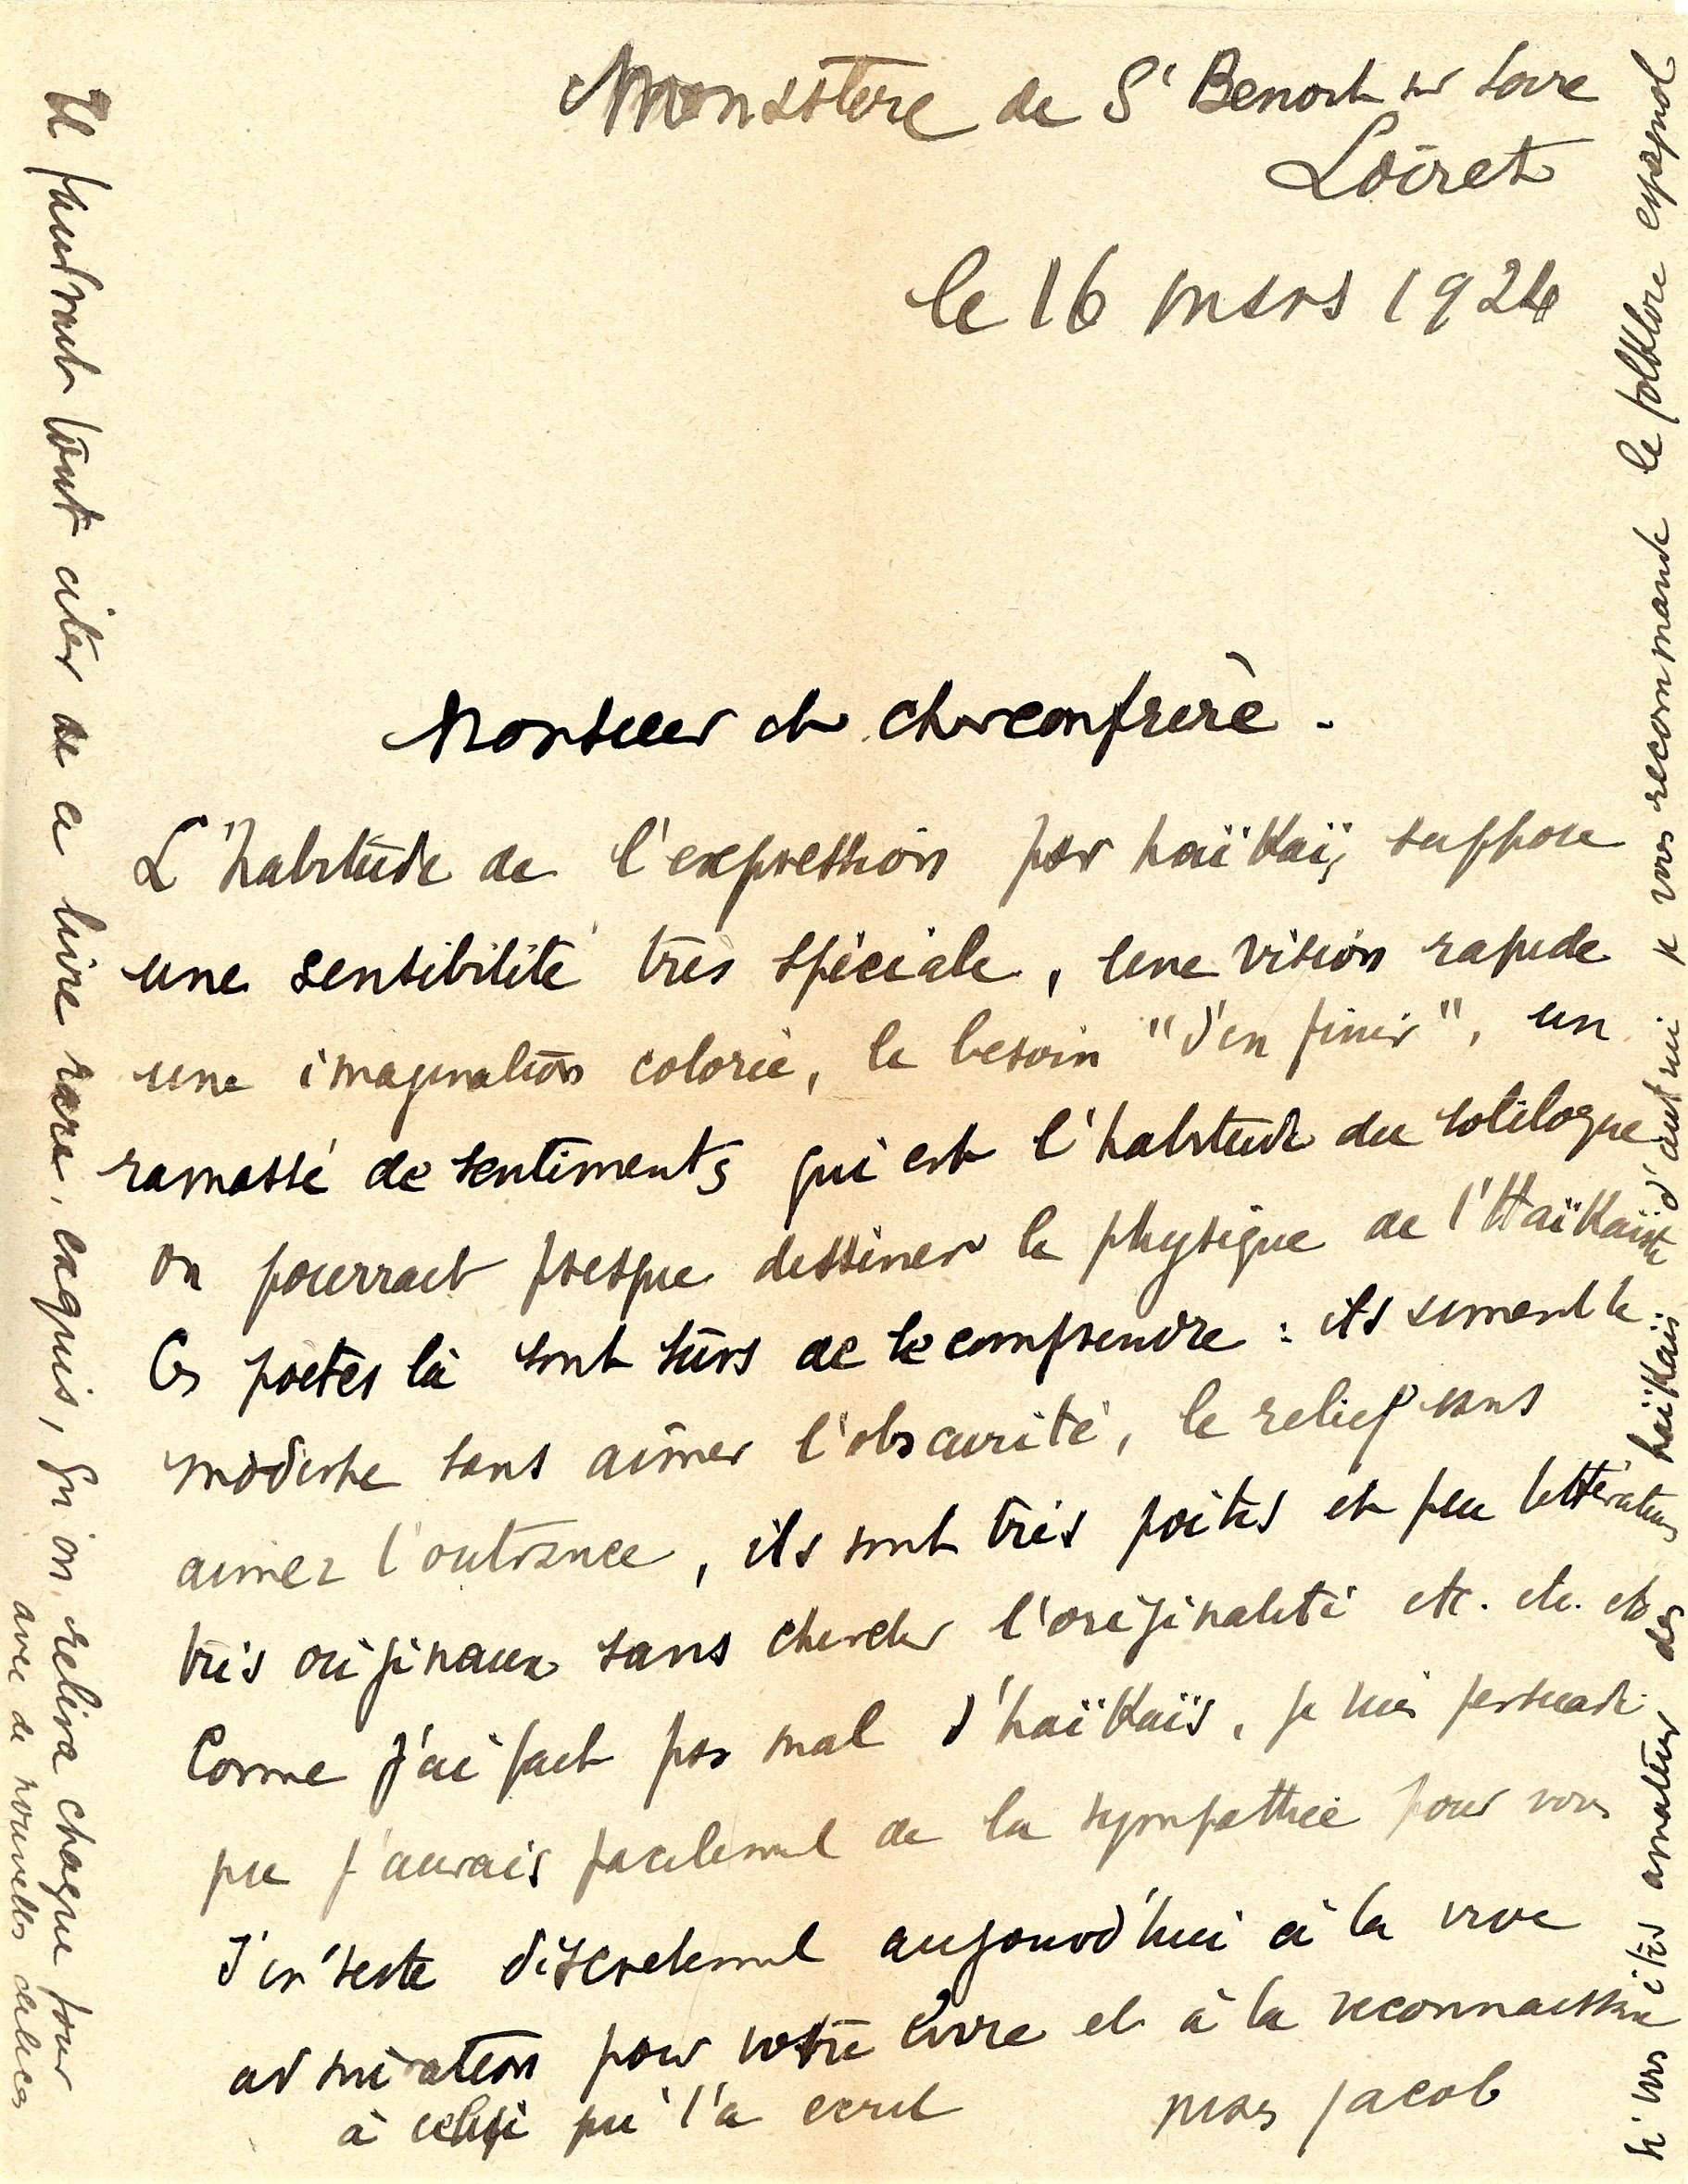 Monastère de St Benoit sur Loire
Loiret
le 16 mars 1924
Monsieur et cher confrère.
L'habitude de l'expression par haïkaï, suppose
une sensibilité très spéciale, une vision rapide
une imagination colorée, le besoin "d'en finir", un
ramassé de sentiments qui est l'habitude du soliloque
On pourrait presque dessiner le physique de l'Haïkaïste
Ces poètes là sont sûrs de se comprendre : ils aiment le
modeste sans aimer l'obscurité, le relief sans
aimer l'outrance, ils sont très poètes et peu littérateurs
très originaux sans chercher l'originalité etc. etc. etc
Comme j'ai fait pas mal d'haïkaïs, je suis persuadé
que j'aurais facilement de la sympathie pour vous
J'en reste discrètement aujourd'hui à la vive
admiration pour votre livre et à la reconnaissance
à celui qui l'a écrit
Max Jacob
Si vous êtes amateur des haïkaïs d'autrui je vous recommande le folklore espagnol
Il faudrait tout citer de ce livre rare, exquis, qu'on relira chaque jour
avec de nouvelles délices